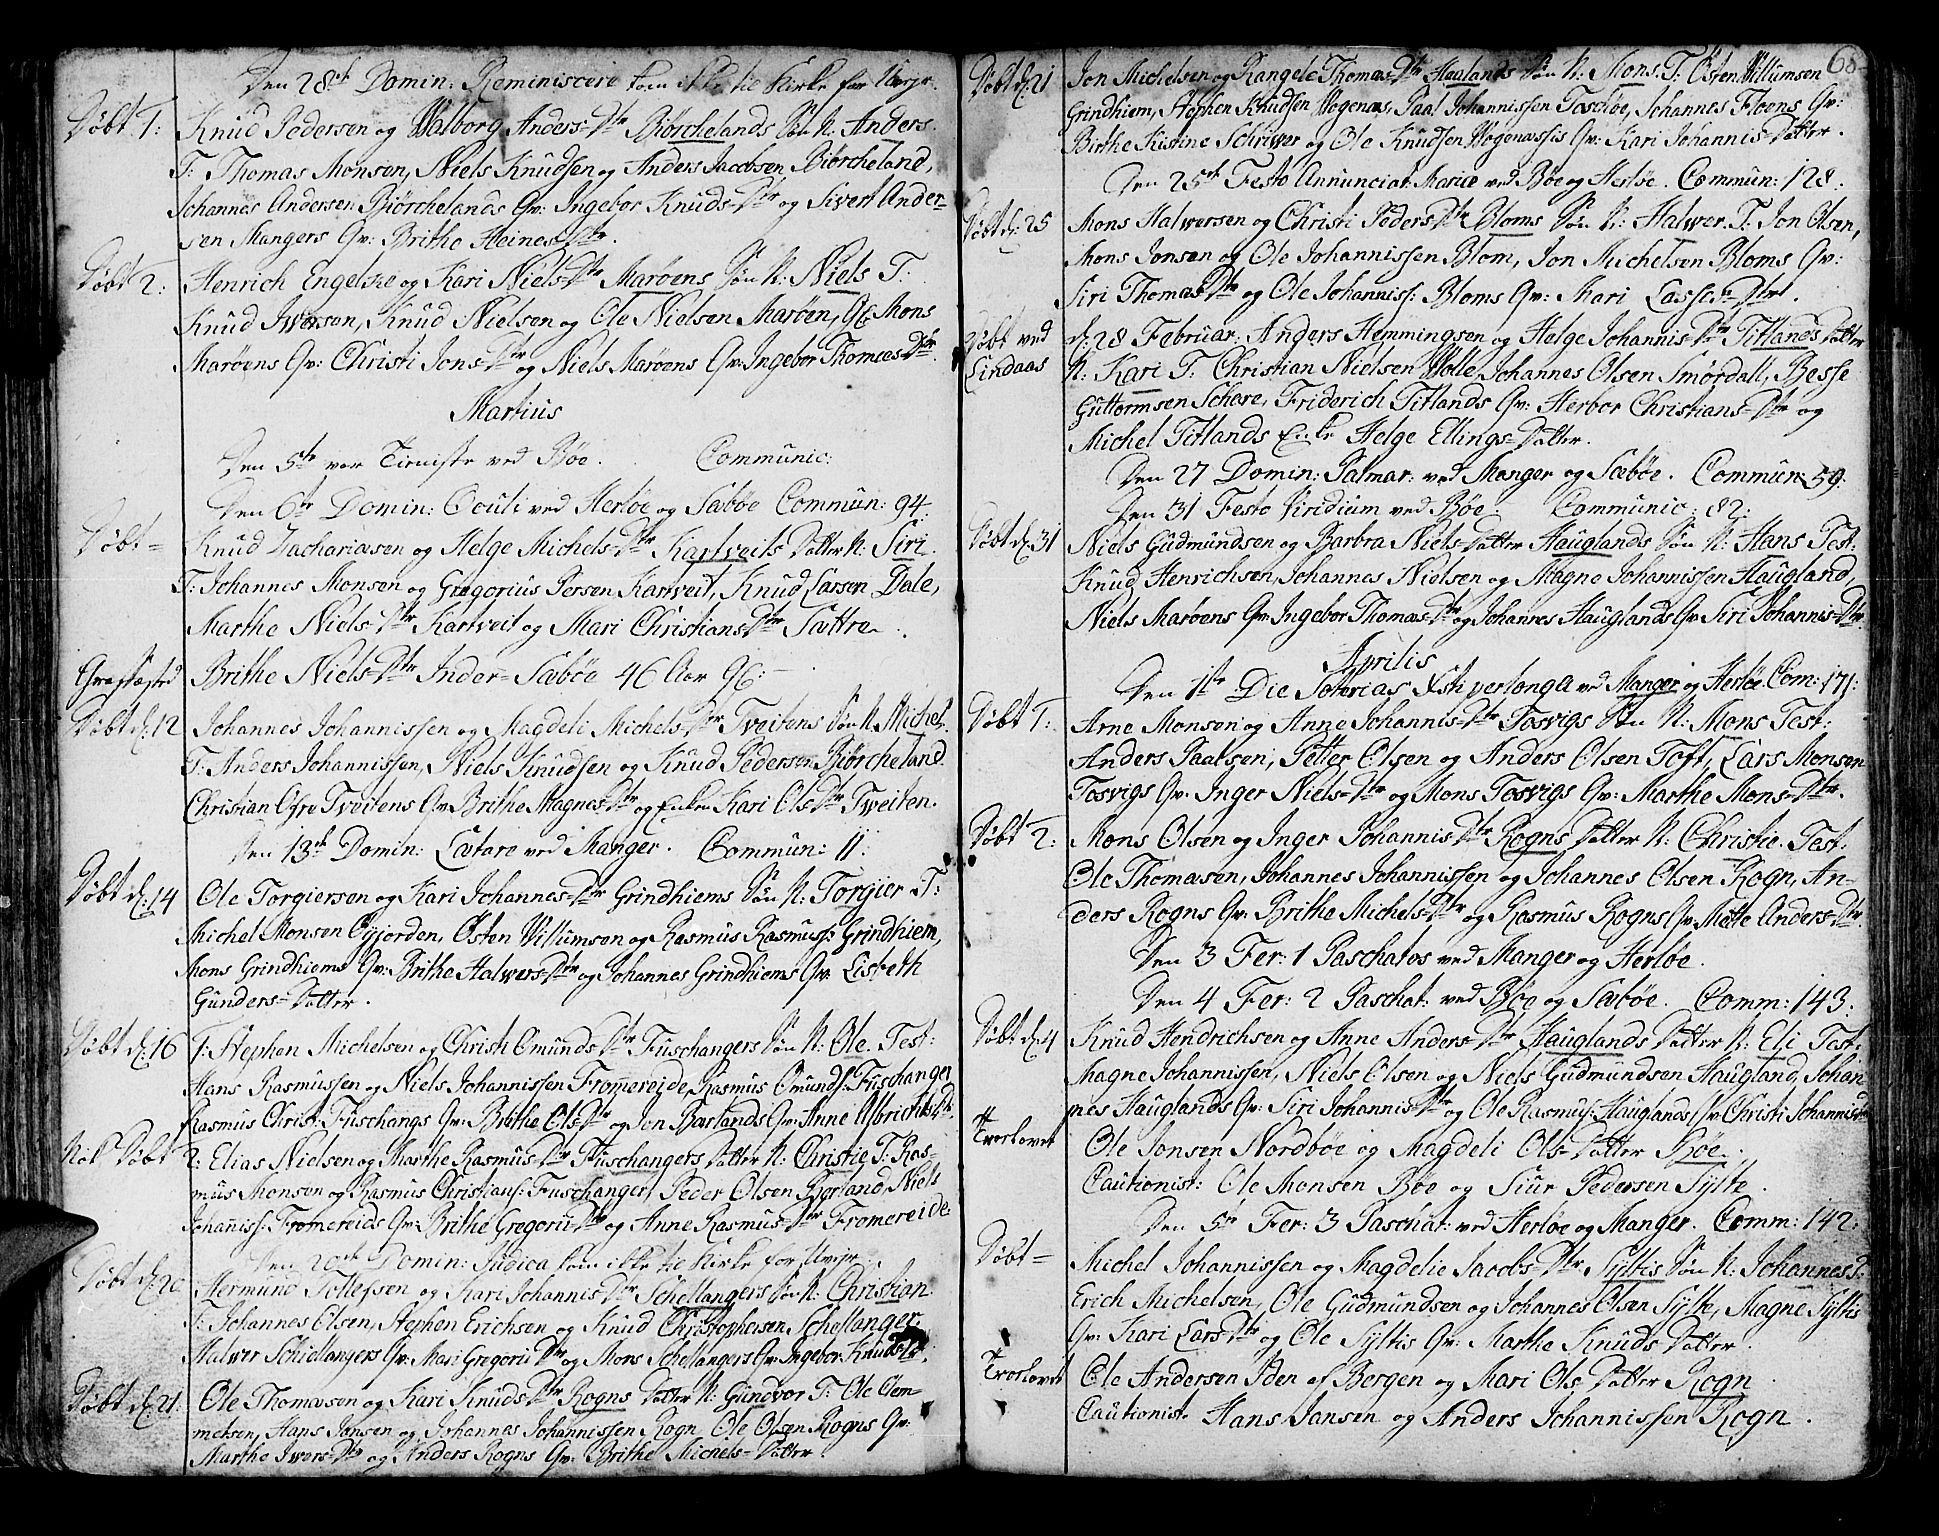 Den 28de Domin: Reminiscere kom ikke til Kirke for Uvejr.
Døbt 1: Knud Pedersen og Walborg Anders-Dtr Biørchelands Søn N: Anders.
T: Thomas Monsen, Niels Knudsen og Anders Jacobsen Biørcheland,
Johannes Andersen Biørchelands Qv: Ingebor Knuds-Dtr og Sivert Ander-
sen Mangers Qv: Brithe Heines-Dtr.
Døbt 2: Henrich Engelsne og Kari Niels-Dtr Marøens Søn N: Niels T:
Knud Iversen, Knud Nielsen og Ole Nielsen Marøen, Gl. Mons
Marøens Qv: Christi Jons-Dtr og Niels Marøens Qv: Ingebor Thomæs-Dtr.
Martius
Den 5te var Tieniste ved Bøe. Communic:
Den 6te Domin: Oculi ved Herløe og Sæbøe Commun: 94.
Døbt = Knud Zachariasen og Helge Michels-Dtr Kartveits Datter N: Siri.
T: Johannes Monsen og Gregorius Persen Kartveit, Knud Larsen Dale,
Marthe Niels-Dtr Kartveit og Mari Christians-Dtr Sættre.
Græsfæsted Brithe Niels-Dtr Inder-Sæbøe 46 Aar 96:
Døbt d: 12 Johannes Johannissen og Magdeli Michels-Dtr Tveitens Søn N. Michel.
T: Anders Johannissen, Niels Knudsen og Knud Pedersen Biørcheland
Christian Øfre Tveitens Qv: Brithe Magnæs-Dtr og Enken Kari Ols-Dtr Tweiten.
Den 13de Domin: Lætare ved Manger. Commun: 11:
Døbt d: 14 Ole Torgiersen og Kari Johannes-Dtr Grindhiems Søn N: Torgier T:
Michel Monsen Øyjorden, Østen Villumsen og Rasmus Rasmuss: Grindhiem,
Mons Grindhiems Qv: Brithe Halwers-Dtr og Johannes Grindhiems Qv: Lisbeth
Gunders-Datter.
Døbt d: 16 1: Stephen Michelsen og Christi Omunds-Dtr Fuschangers Søn N: Ole. Test:
Hans Rasmussen og Niels Johannissen Fromereide, Rasmus Omunds: Fuschanger
Rasmus Christ: Fuschangs Qv: Brithe Ols-Dtr og Jon Barlands Qv: Anne Albrichts-Dtr.
Nok Døbt 2: Elias Nielsen og Marthe Rasmus-Dtr Fuschangers Datter N: Christie T: Ras-
mus Monsen og Rasmus Christians: Fuschanger, Peder Olsen Barland, Niels
Johaniss: Fromereids Qv: Brithe Gregorii-Dtr og Anne Rasmus-Dtr Fromereide.
Den 20de Domin: Judica kom ikke til Kirke for Uvejr.
Døbt d: 20 Hermund Tollefsen og Kari Johannis-Dtr Schellangers Søn N: Christian
T: Johannes Olsen, Stephen Erichsen og Knud Christophersen Schellanger
Halwer Schiellangers Qv: Mari Gregorii-Dtr og Mons Schellangers Qv: Ingebor Knuds-Dtr.
Døbt d: 21 Ole Thomæsen og Kari Knuds-Dtr Rogns Datter N: Gundvor T: Ole Clem-
metsen, Hans Jonsen og Johannes Johannissen Rogn Ole Olsen Rogns Qv:
Marthe Iwers-Dtr og Anders Rogns Qv: Brithe Michels-Datter.
68
Døbt d: 21 Jon Michelsen og Rangele Thomas-Dtr Haalands Søn N: Mons. T: Østen Villumsen
Grindhiem, Stephen Knudsen Wogenæs, Paal Johannissen Toscløe, Johannes Floens Qv:
Birthe Kistine Schriwer og Ole Knudsen Wogenæssis Qv: Kari Johannis-Datter.
Den 25de Festo Annunciat: Mariæ ved Bøe og Herløe. Commun: 128.
Døbt d: 25 Mons Halwersen og Christi Peders-Dtr Bloms Søn N: Halwer. T: Jon Olsen,
Mons Jonsen og Ole Johannissen Blom, Jon Michelsen Bloms Qv:
Siri Thomæs-Dtr og Ole Johanniss: Bloms Qv: Mari Lasses-Dtr.
Døbt ved d: 28 Februar: Anders Hemmingsen og Helge Johannis-Dtr Titlands Datter
Lindaas N: Kari T: Christian Nielsen Wolle, Johannes Olsen Smørdall, Besse
Guttormsen Schore, Friderich Titlands Qv: Herbor Christians-Dtr og
Michel Titlands Enke Helge Ellings-Datter.
Den 27 Domin: Palmar: ved Manger og Sæbøe. Commun: 59:
Den 31 Festo Viridium ved Bøe. Communic: 82:
Døbt d: 31 Niels Gudmundsen og Barbra Niels-Datter Hauglands Søn N: Hans Test:
Knud Henrichsen, Johannes Nielsen og Magne Johannissen Haugland,
Niels Marøens Qv: Ingebor Thomæs-Dtr og Johannes Hauglands Qv: Siri Johannis-Dtr.
Aprilis
Den 1te Die Soterias Xsti verlænga ved Manger og Herløe Com: 171:
Døbt 1: Arne Monsen og Anne Johannis-Dtr Tosvigs Søn N: Mons Test:
Anders Paalsen, Petter Olsen og Anders Olsen Toft, Lars Monsen
Tosvigs Qv: Inger Niels-Dtr og Mons Tosvigs Qv: Marthe Mons-Dtr.
Døbt 2: Mons Olsen og Inger Johannis-Dtr Rogns Datter N: Christie. Test:
Ole Thomæsen, Johannes Johannissen og Johannes Olsen Rogn, An-
ders Rogns Qv: Brithe Michels-Dtr og Rasmus Rogns Qv: Mette Anders-Dtr.
Den 3 Fer: 1 Paschatos ved Manger og Herløe.
Den 4 Fer: 2 Paschat: ved Bøe og Sæbøe. Comm: 143.
Døbt d: 4 Knud Hendrichsen og Anne Anders-Dtr Hauglands Datter N: Eli Test:
Magne Johannissen, Niels Olsen og Niels Gudmundsen Haugland, Johan
nes Hauglands Qv: Siri Johannis-Dtr og Ole Rasmus: Hauglands Qv: Christi Johannis-Dtr
Trorlovet Ole Jonsen Nordbøe og Magdeli Ols-Datter Bøe.
Cautionist: Ole Monsen Bøe og Siur Pedersen Sylte.
Den 5te Fer: 3 Paschat: ved Herløe og Manger. Comm: 142:
Døbt = Michel Johannissen og Magdelie Jacobs-Dtr Syltis Søn N: Johannes T:
Erich Michelsen, Ole Gudmundsen og Johannes Olsen Sylte, Magne Syltis
Qv: Kari Lars-Dtr og Ole Syltis Qv: Marthe Knuds-Datter.
Trorlovet Ole Andersen Iden af Bergen og Mari Ols-Datter Rogn.
Cautionist. Hans Jansen og Anders Johannissen Rogn.